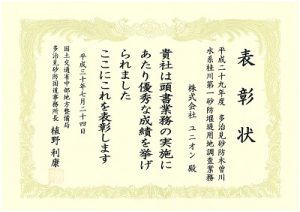 表彰状
平成二十九年度 多治見砂防木曽川
水系桂川第一砂防堰堤用地調査業務
株式会社 ユニオン 殿
貴社は頭書業務の実施に
あたり優秀な成績を挙げ
られました
ここにこれを表彰します
平成三十年七月二十四日
国土交通省中部地方整備局
多治見砂防国道事務所長 植野利康